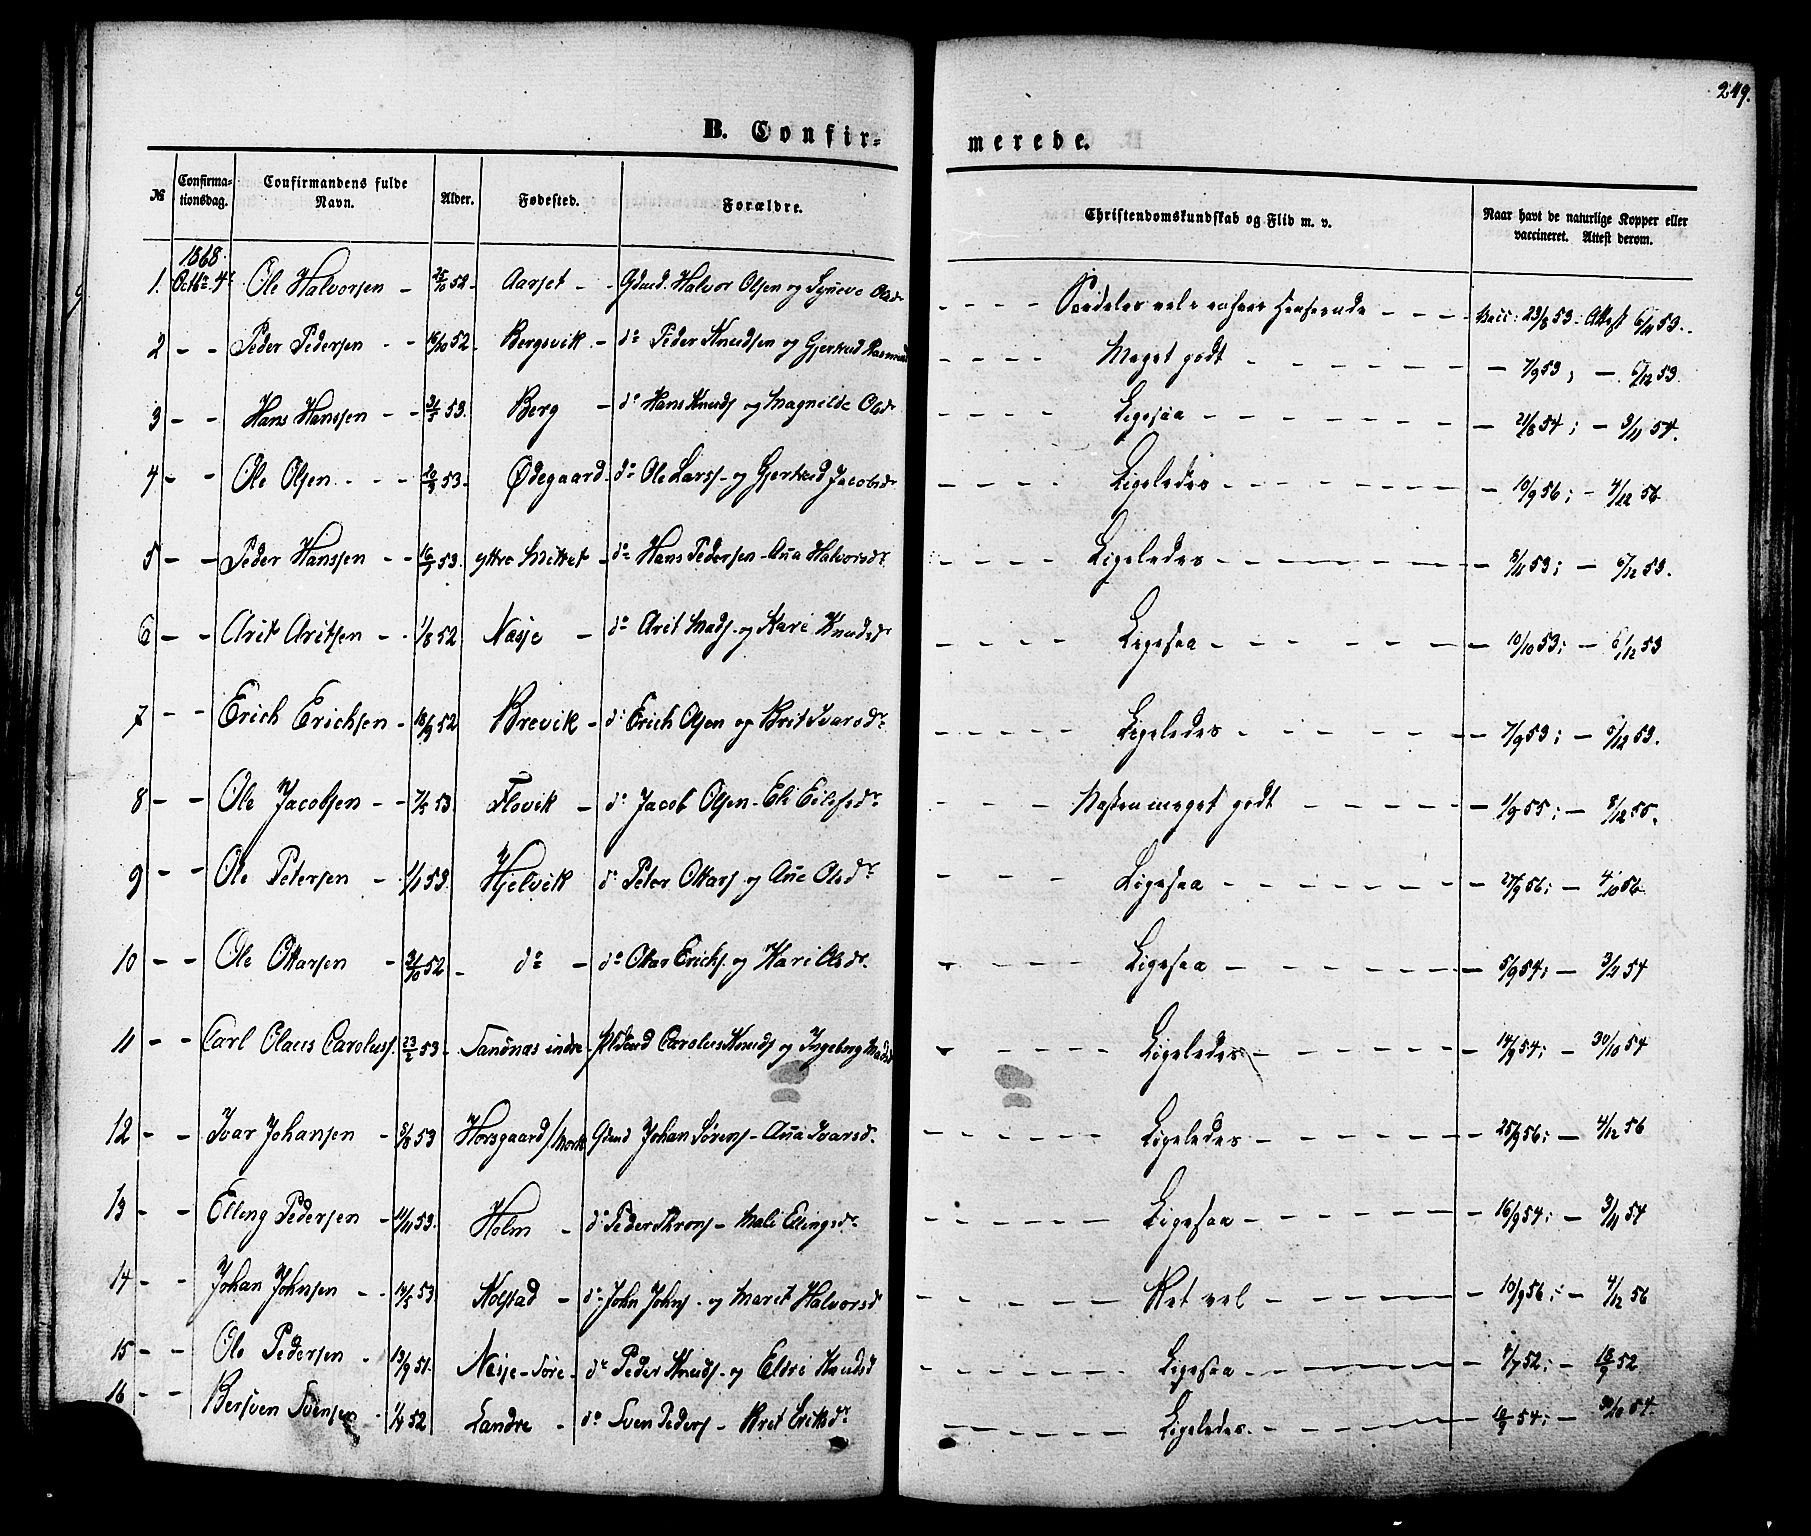 249.
B. Confirmerede.
№ Confirmationsdag. Confirmandens fulde Navn. Alder. Fødested. Forældre. Christendomskundskab og Flid m. v. Naar havt de naturlige Kopper eller vaccineret. Attest derom.
1868.
1. Octbr. 4de Ole Halvorsen - 25/10 52 - Aarset - - Gdmd. Halvor Olsen og Synneve Olsdr - - - - Særdeles vel i enhver Henseende - - - Vacc: 23/8 53. Attest 6/11 53.
2 - - Peder Pedersen - - 16/10 52 - Bergsvik - do Peder Knudsen og Gjertrud - - - - Meget godt - - - - - 7/9 53; - 6/12 53.
3 - - Hans Hanssen - - 53. Berg - do Hans Knuds og Magnilde Olsdr - - - - Ligesaa - - - - - 21/8 54; - 3/11 54.
4 - - Ole Olsen - - - 53. Ødegaard - do Ole Larss. og Gjertrud Jacobsdr - - - - Ligeledes - - - - - 10/9 56; - 4/12 56
5 - - Peder Hanssen - - 53. ytre Mittet - do Hans Pedersen - Ana Halvorsdr - - - - Ligeledes - - - - - 8/11 53; - 6/12 53.
6 - - Arit Aritsen - - 1/8 52 Nesje - do Arit Mads. og Kari Knudsdr - - - - Ligesaa - - - - - 10/10 53; - 6/12 53
7 - - Erich Erichsen - 18/9 52 Brevik - do Erich Olsen og Brit Ivarsdr - - - - Ligeledes - - - - - 7/9 53; - 6/12 53.
8 - - Ole Jacobsen - - 7/5 53 Flovik - do Jacob Olsen - Eli Eilefsdr - - - Næsten meget godt - - - - 1/9 55; - 8/12 55.
9 - - Ole Petersen - 1/1 53. Hjelvik do Peter Ottars og Ane Olsdr - - - - Ligesaa - - - - - 27/9 56; - 4/10 56
10 - - Ole Ottarsen - 31/10 52 - do - do Ottar Erichs. og Kari Olsdr. - - - - Ligesaa - - - - - 5/9 54; - 3/11 54
11 - - Carl Olaus Caroluss. 23/2 53 - Sandnæs indre - Carolus Knuds og Ingeborg Madsd - - - - Ligeledes - - - - - 14/9 54; - 30/10 54
12 - - Ivar Johansen - 8/8 53 Horsgaard/Mork Gdmd Johan Sørens - Ana Ivarsd. - - - - Ligeledes - - - - - 25/9 56; - 4/12 56
13 - - Elling Pedersen - 11/11 53. Holm - do Peder Trons - Mali Ellingsdr - - - - Ligesaa - - - - - 16/9 54; - 3/11 54
14 - - Johan Johnsen - - 14/5 53 Nolstad - do John Johns. og Marit Halvorsd - - - - Ret vel - - - - - 10/9 56; - 4/12 56
15 - - Ole Pedersen - 13/9 51. Nesje-Søre - do Peder Knuds. og Eldri Knudsd - - - - Ligesaa - - - - - 7/7 52; - 18/9 52
16 - - Bersven Svensen - 1/4 52 Landre - do Sven Peders - Bret Eriksdr - - - - Ligeledes. - - - - - 18/9 54; - 30/10 54